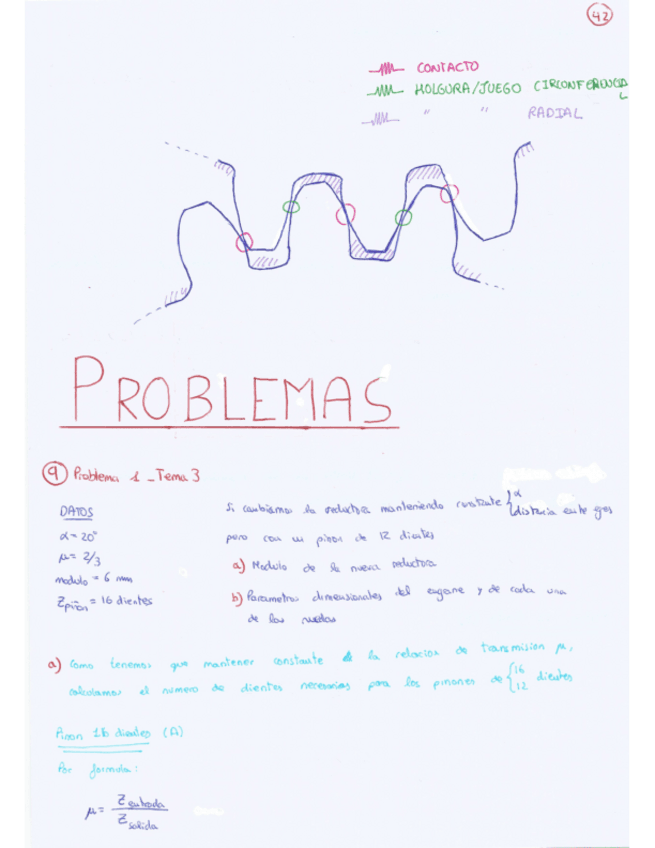 42
CONTACTO
HOLGURA/JUEGO CIRCONFERENCIAL
" " RADIAL
PROBLEMAS
9 Problema 1 _ Tema 3
DATOS
α = 20°
μ = 2/3
modulo = 6 mm
Zpiñon = 16 dientes
Si cambiamos la reductora manteniendo constante { α
distancia entre ejes
pero con un piñon de 12 dientes
a) Modulo de la nueva reductora
b) Parametros dimensionales del engrane y de cada una
de las ruedas
a) Como tenemos que mantener constante la relacion de transmision μ,
calculamos el numero de dientes necesarios para los piñones de { 16
12 dientes
Piñon 16 dientes (A)
Por formula:
μ = Z entrada
Z salida